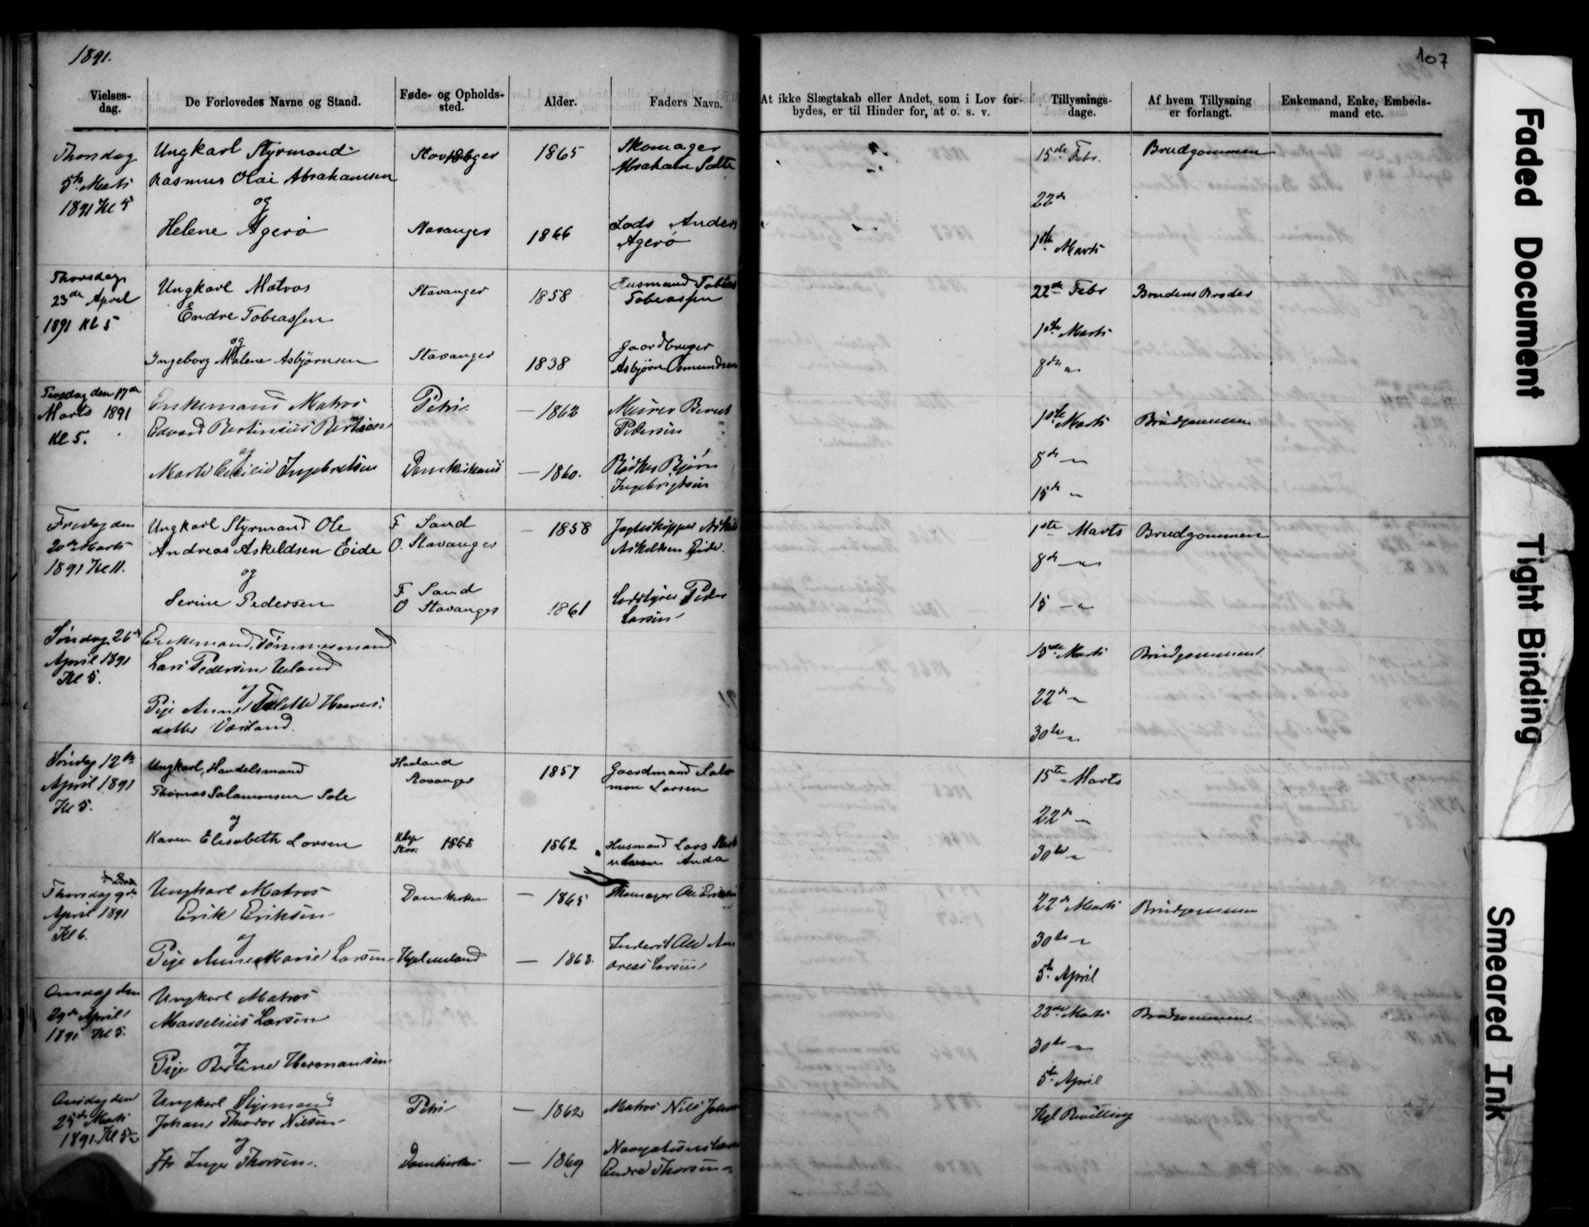 1891.
107
Vielses-
dag.
De Forlovedes Navne og Stand.
Føde- og Opholds-
sted.
Alder.
Faders Navn.
At ikke Slægtskab eller Andet, som i Lov for-
bydes, er til Hinder for, at o. s. v.
Tillysnings-
dage.
Af hvem Tillysning
er forlangt.
Enkemand, Enke, Embeds-
mand etc.
Thorsdag
5te Marts
1891 Kl 5
Ungkarl Styrmand
Rasmus Olai Abrahamsen
og
Helene Agerø
Stavanger
Stavanger
1865
1866
Skomager
Abraham Salte
Lods Anders
Agerø
15de Febr.
22de
1ste Marts
Brudgommen
Thorsdag
23de April
1891 Kl 5
Ungkarl Matros
Endre Tobiassen
og
Ingeborg Malene Asbjørnsen
Stavanger
Stavanger
1858
1838
Husmand Tobias
Tobiassen
Gaardbruger
Asbjørn Osmundsen
22de Febr
1ste Marts
8de "
Brudens Broder
Tirsdag den 17de
Marts 1891
Kl 5.
Enkemand Matros
Edvard Bertinius Bertsen
og
Ingebretsen
Petri
Domkirkens
— 1862
— 1860.
Murer Bernt
Pedersen
Bjørn
Ingebrigtsen
1ste Marts
8de "
15de "
Brudgommen
Fredag den
20de Marts
1891 Kl 11.
Ungkarl Styrmand Ole
Andreas Askeldsen Eide
og
Serine Pedersen
F Sand
O. Stavanger
F Sand
O Stavanger
— 1858
1861
Jagteskipper
Askeldsen Eide.
Peder
Larsen
1ste Marts
8de "
15 — "
Brudgommen
Søndag 26de
April 1891
Kl 5.
Enkemand, Tømmermand
Lars Pedersen Ueland
og
Pige
datter
15de Marts
22de "
30te "
Brudgommen
Søndag 12te
April 1891
Kl 5.
Ungkarl, Handelsmand
Thomas Salamonsen Sele
og
Karen Elisabeth Larsen
Haaland
Stavanger
Klep
Stav. 1868
1857
1862
Gaardmand Salo-
mon Larsen
Husmand Lars
Anda
15te Marts
22de "
30te "
Thorsdag 9de
April 1891
Kl 6.
Ungkarl Matros
Erik Eriksen
og
Pige Anne Marie Larsen
Domkirken
Hetland
— 1865
— 1868.
Skomager Ole Eriksen
Inderst Ole An-
dreas Larsen
22de Marts
30te "
5te April
Brudgommen
Onsdag den
29de April
1891 Kl 5.
Ungkarl Matros
Marselius Larsen
og
Pige Bertine Hermansen
22de Marts
30te "
5te April
Brudgommen
Onsdag den
25de Marts
1891. Kl 5
Ungkarl Styrmand
Johan Theodor Nilsen
og
Inger Thorsen.
Petri
Domkirken
— 1862
— 1869
Matros Nils
Endre Thorsen
Kgl Bevilling
Faded Document
Tight Binding
Smeared Ink